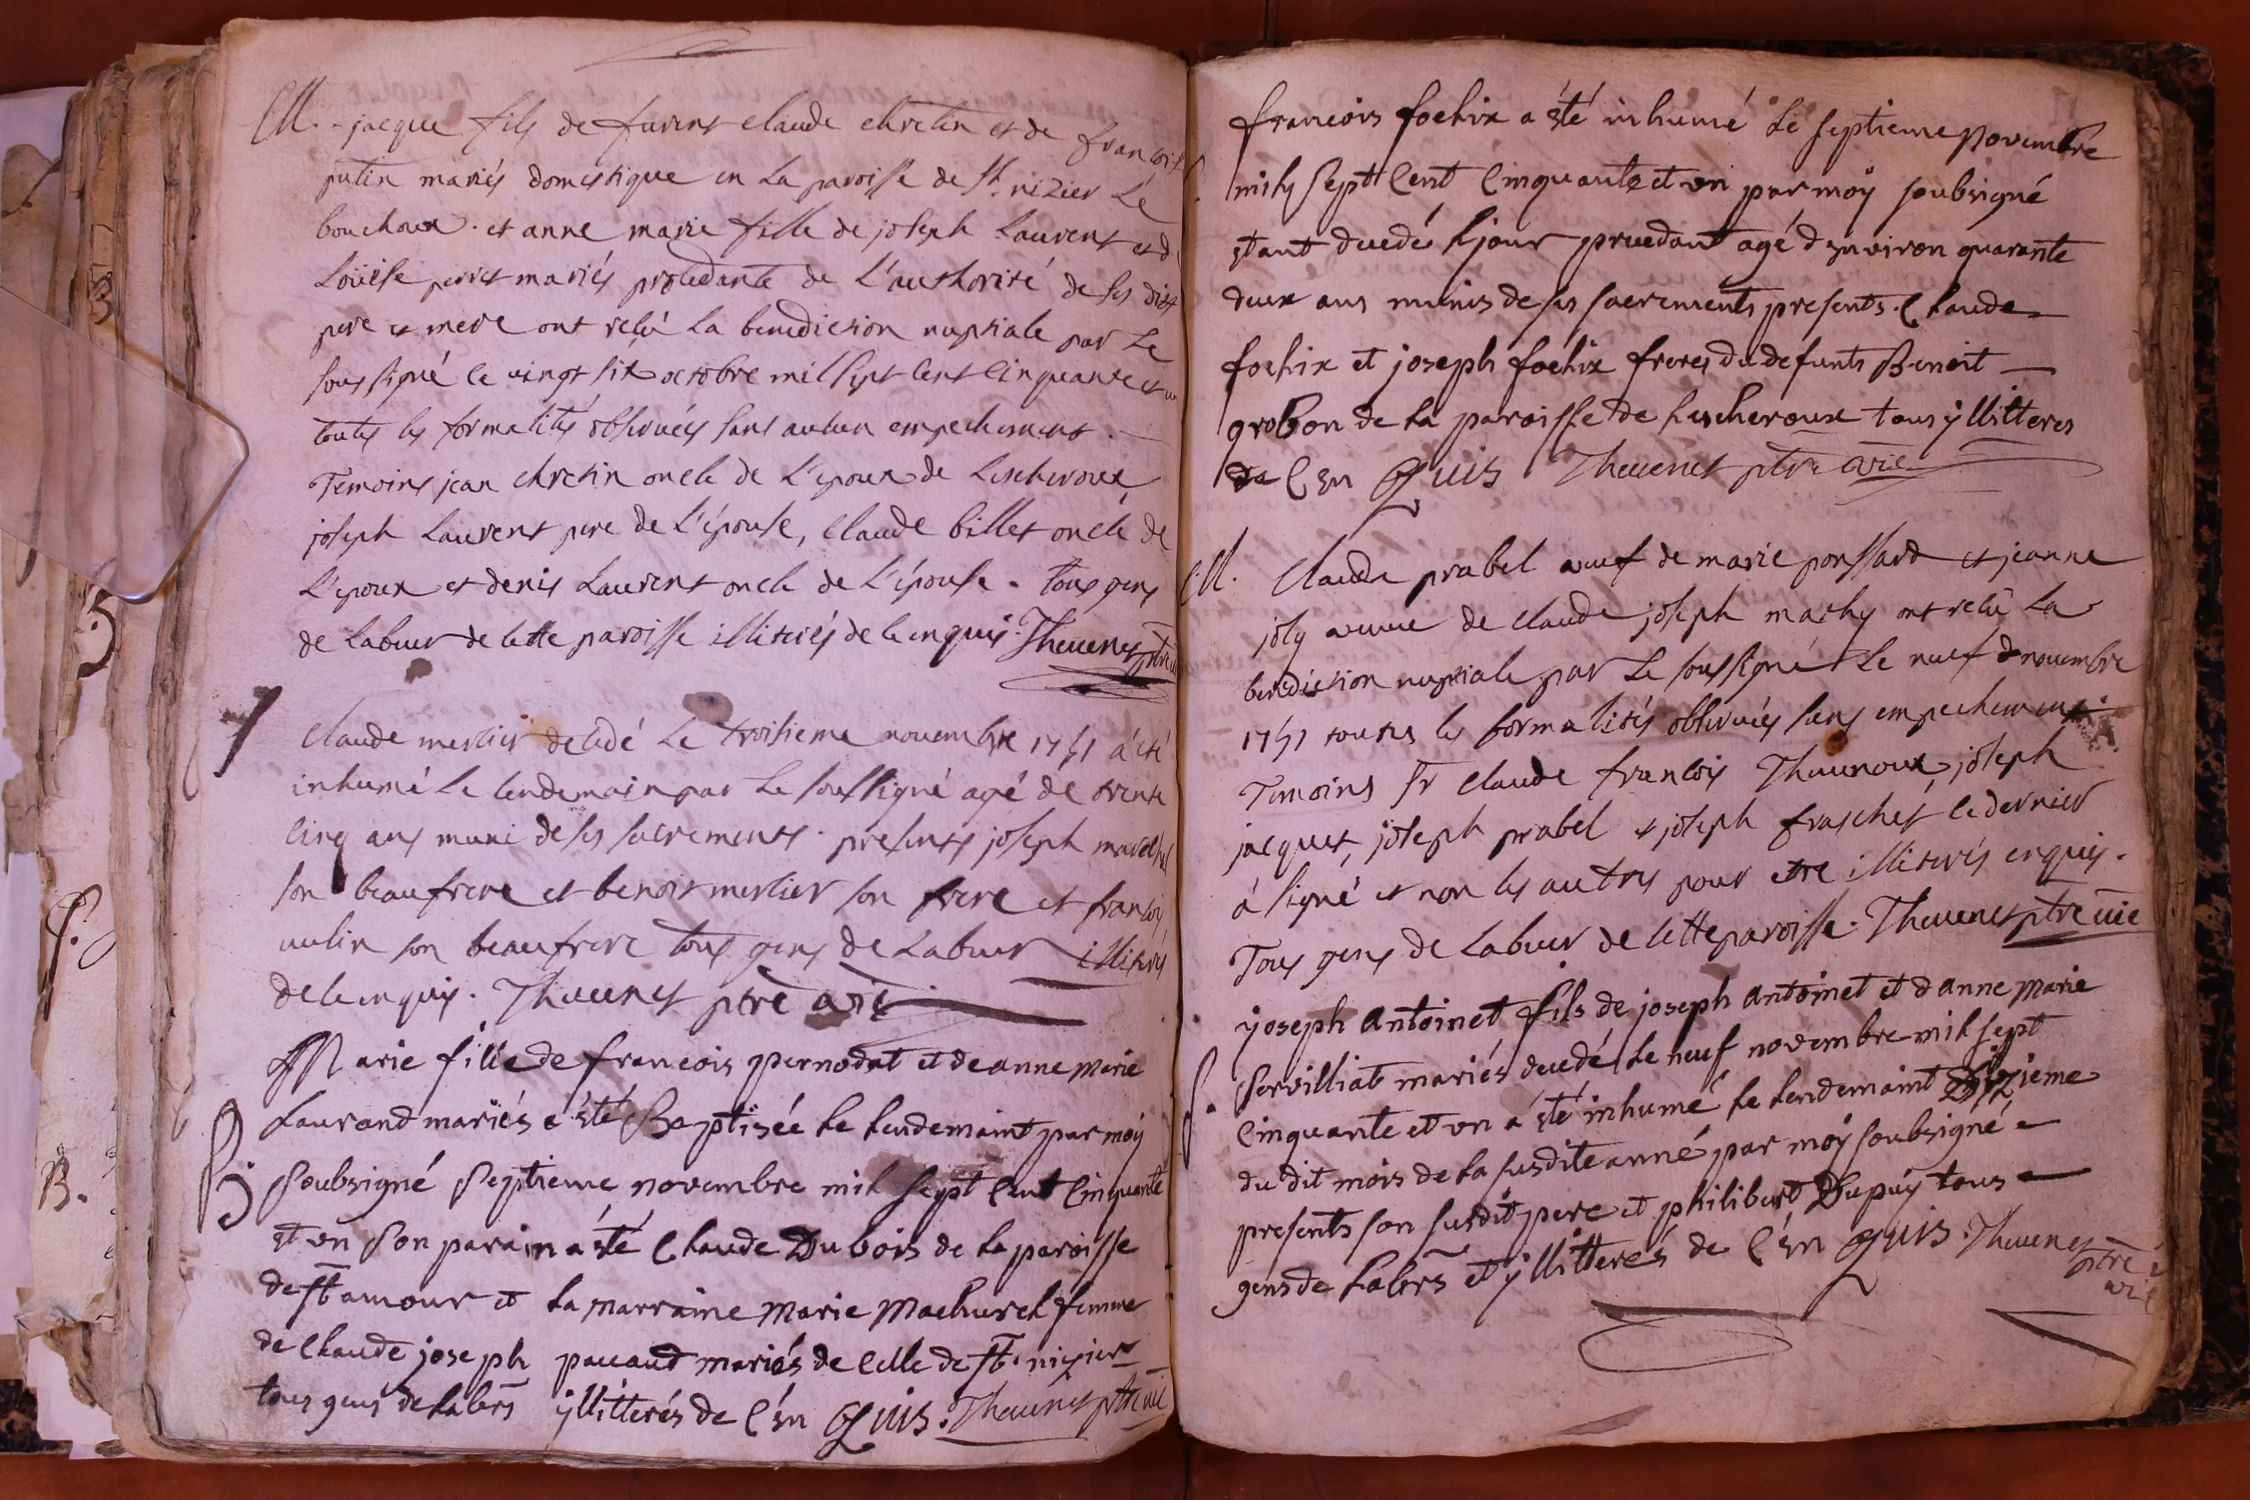 M. jacque fils de furent claude chretin et de françoise
putin mariés domestique en la paroisse de St. nizier Le
bouchoux. et anne marie fille de joseph Laurent et de
Loüise perret mariés procedante de L'authorité de ses dits
pere et mere ont reçû La benediction nuptiale par Le
soussigné le vingt six octobre mil sept cent cinquante et un
toutes les formalités observées sans aucun empechement.
Temoins jean chretin oncle de L'epoux de Lescheroux
joseph Laurent pere de L'épouse, claude billet oncle de
L'epoux et denis Laurent oncle de L'épouse. tous gens
de Labeur de cette paroisse illiterés de ce enquis. Thevenet ptre
claude mercier decedé Le troisieme novembre 1751 a été
inhumé Le lendemain par Le soussigné agé de trente
cinq ans muni de ses sacrements. presents joseph
son beaufrere et benoit mercier son frere et françois
vulin son beaufrere tous gens de Labeur illiterés
de ce enquis. Thevenet ptre vic
B. Marie fille de francois pernodat et de anne Marie
Laurand mariés a été Baptisée le lendemaint par moÿ
soubsigné septieme novembre mil sept cent cinquante
et un son parain a été Claude Dubois de la paroisse
de St amour et la marraine Marie Machurel femme
de Claude joseph pacaud mariés de celle de St. nizier
tous gens de labrs ÿllitterés de C'en Quis. Thevenet ptre vic
francois fochix a été inhumé le septieme Novembre
mil sept Cent Cinquante et un par moÿ soubsigné
etant decedé le jour precedant agé d'environ quarante
deux ans munis de ses sacrements presents. Claude
fochix et joseph fochix freres du defunts Benoit
grobon de la paroisse de Lescheroux tous ÿllitteres
de C'en Quis Thevenet ptre vic
M. Claude prabel veuf de marie ponssard et jeanne
joly veuve de claude joseph machy ont reçû La
benediction nuptiale par Le soussigné Le neuf de novembre
1751 toutes les formalités observées sans empechement.
Temoins Sr claude françois Thevenoux, joseph
jacquet, joseph prabel et joseph fraschet le dernier
a signé et non les autres pour etre illiterés enquis.
Tous gens de Labeur de cette paroisse. Thevenet ptre vic
S. joseph Antoinet fils de joseph antoinet et d anne Marie
servilliat mariés decedé le neuf novembre mil sept
cinquante et un a été inhumé le lendemaint Dixieme
du dit mois de la susdite anné par moÿ soubsigné
presents son susdit pere et philibert Dupuÿ tous
gens de labrs et ÿllitterés de C'en Quis. Thevenet
ptre
vic